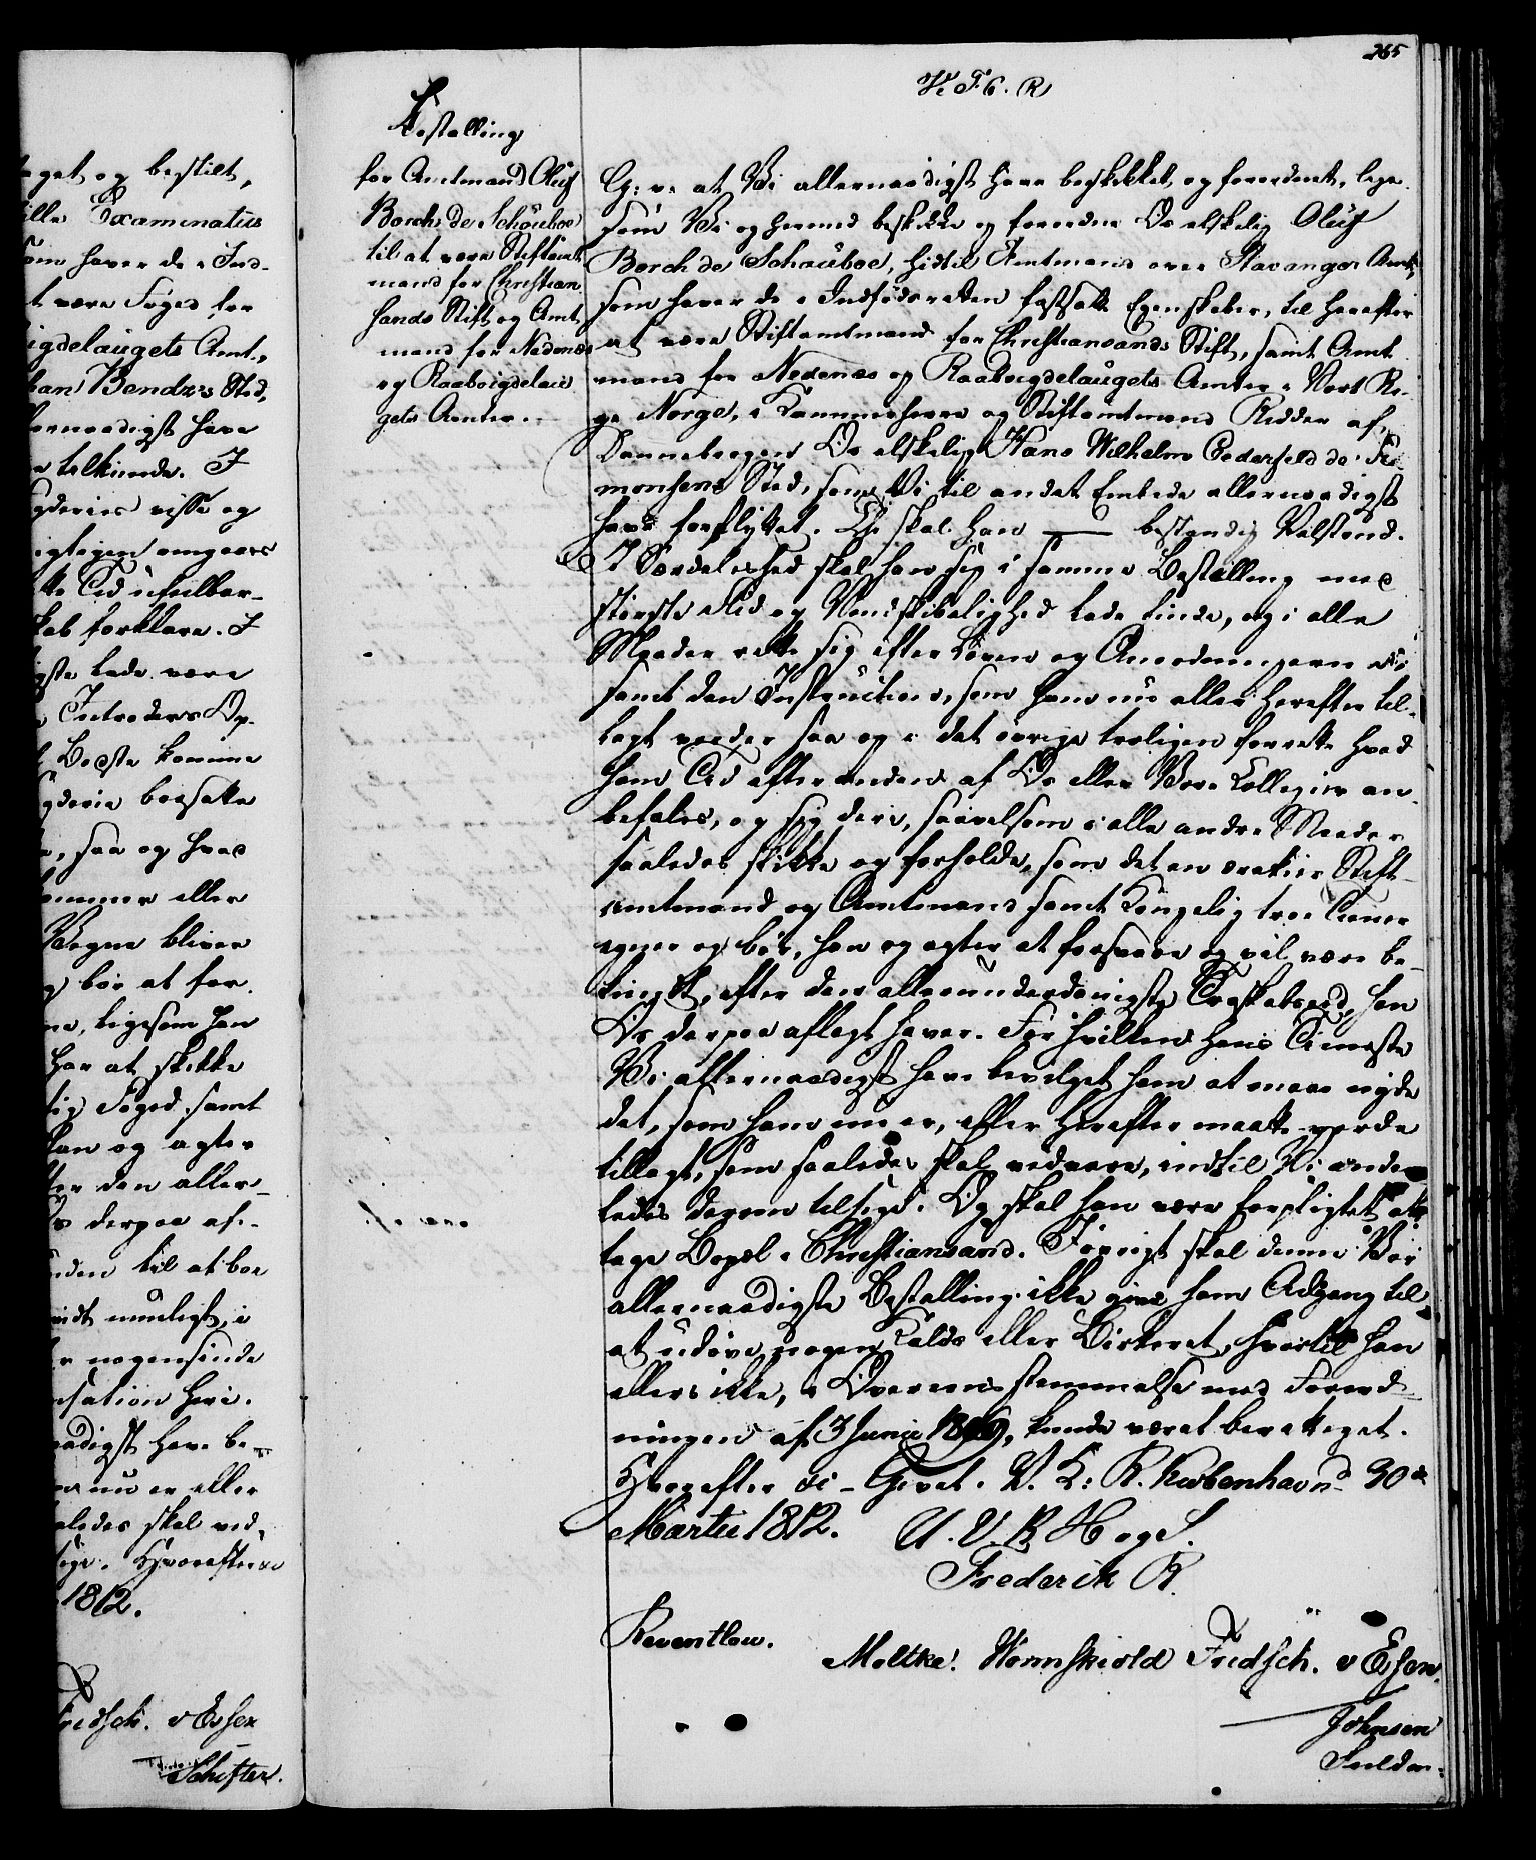 265
V. F. 6. R
Bestalling
for Amtmand Oluf
Borch de Schouboe
til at være Stiftamt-
mand for Christian-
sands Stift og Amt-
mand for Nedenæs
og Raabøigdelau-
gets Amter.
G: v: at Vi allernaadigst have beskikket og forordnet, lige-
som Vi og hermed beskikke og forordne Os elskelig Oluf
Borch de Schouboe, hidtil Amtmand over Stavanger Amt,
som haver de i Indfødsretten fastsatte Egenskaber, til herefter
at være Stiftamtmand for Christiansands Stift, samt Amt-
mand for Nedenæs og Raabøigdelaugets Amter i Vort Ri-
ge Norge, i Kammerherre og Stiftamtmand Ridder af
Dannebrogen Os elskelig Hans Wilhelm Cederfeld de Si-
monsens Sted, som Vi til andet Embede allernaadigst
have forflyttet. Thi skal han — bestandig Velstand.
I Særdeleshed skal han sig i samme Bestalling med
største Flid og Vindskibelighed lade finde, og i alle
Maader rette sig efter Loven og Anordningerne
samt den Instruction, som ham nu eller herefter til-
lagt vorder saa og i det øvrige troligen forrette hvad
ham Tid efter anden af Os eller Vore Collegier an-
befales, og sig deri, saavelsom i alle andre Maader
saaledes skikke og forholde, som det en ærekiær Stift-
amtmand og Amtmand samt Kongelig troe Tiener
egner og bør, han og agter at forsvare og vil være be-
kiendt, efter den allerunderdanigste Troskabseed, han
Os derpaa aflagt haver. For hvilken hans Tieneste
Vi allernaadigst have bevilget ham at maae nyde
det, som ham nu er, eller herefter maatte vorde
tillagt, som saaledes skal vedvare, indtil Vi ander-
ledes derom tilsige. Og skal han være forpligtet at
tage Bopæl i Christiansand. Iøvrigt skal denne Vor
allernaadigste Bestalling ikke give ham Adgang til
at udøve nogen Kalds eller Birkeret, hvortil han
ellers ikke, i Overeensstemmelse med Forord-
ningen af 3 Junii 1809, kunde været berettiget.
Hvorefter &c – Givet i V. K: R. Kiøbenhavn d 30te
Martii 1812. U. V. K H og S.
Frederik R.
Reventlow.
Moltke. Wormskiold Fridsch. v Essen.
Johnsen
Fulden:
get og bestilt,
Examinatus
som haver de i Ind-
t være Foged for
igdelaugets Amt,
han Bendzes Sted,
lernaadigst have
tilkiende. I
gderies visse og
Eed ufeilbar-
kab forklare. I
gste lade være
Intraders Op-
Bedste komme
gderie besatte
, saa og hvad
ommer eller
Vegne bliver
g bør at for-
ne, ligesom han
har at skikke
ig Foged samt
han og agter
ter den aller-
s derpaa af-
nden til at boe
idt mueligt, i
r nogensinde
nsation heri.
aadigst have be-
nu er eller
aledes skal ved-
sige. Hvorefter &c
1812.
Fridsch. v Essen
Schifter.